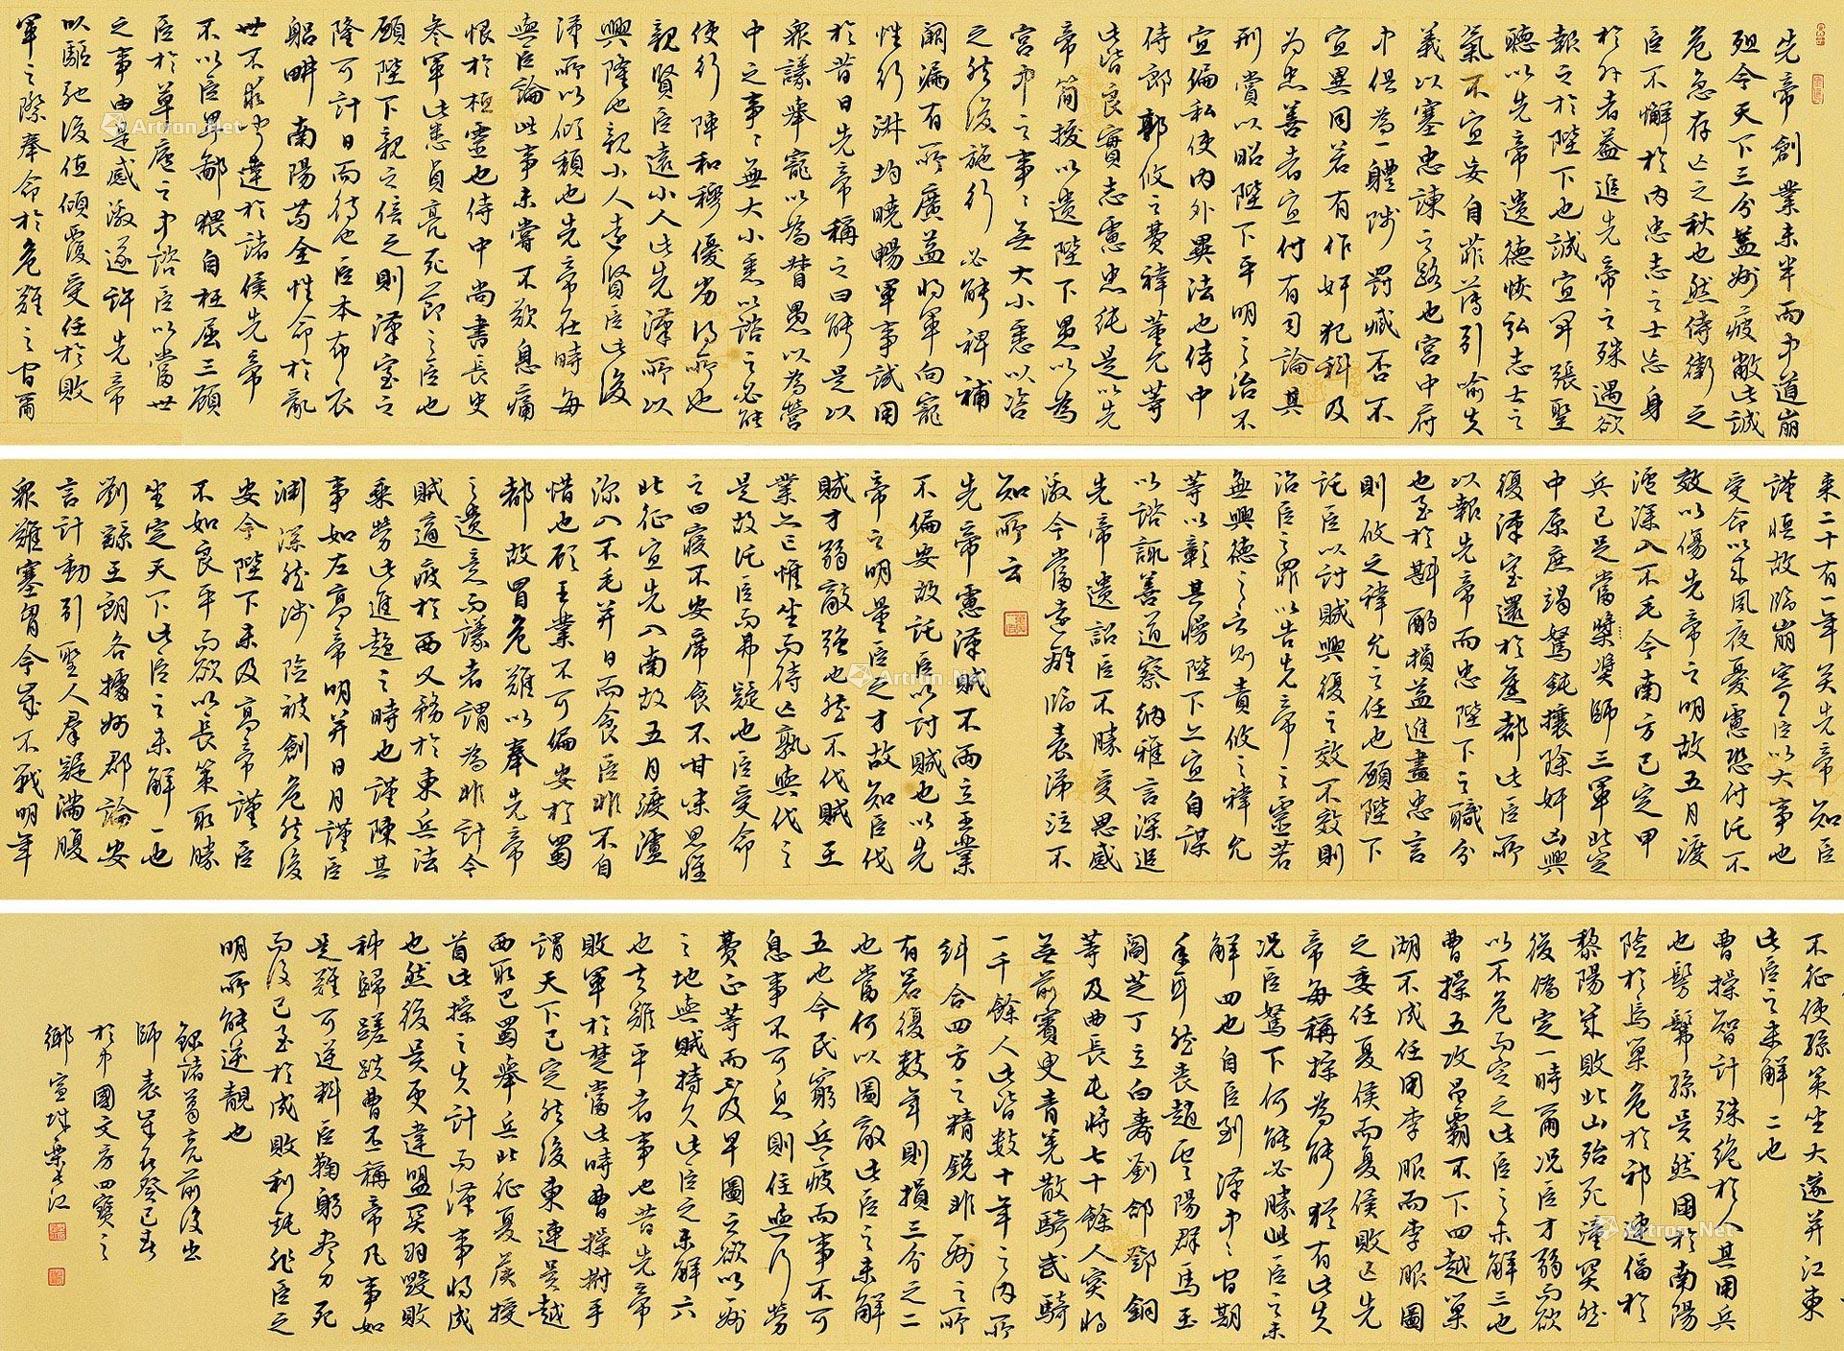 先帝創業未半而中道崩
殂今天下三分益州疲敝此誠
危急存亡之秋也然侍衛之
臣不懈於內忠志之士忘身
於外者蓋追先帝之殊遇欲
報之於陛下也誠宜開張聖
聽以光先帝遺德恢弘志士之
氣不宜妄自菲薄引喻失
義以塞忠諫之路也宮中府
中俱為一體陟罰臧否不
宜異同若有作奸犯科及
為忠善者宜付有司論其
刑賞以昭陛下平明之治不
宜偏私使內外異法也侍中
侍郎郭攸之費禕董允等
此皆良實志慮忠純是以先
帝簡拔以遺陛下愚以為
宮中之事事無大小悉以咨
之然後施行必能裨補
闕漏有所廣益將軍向寵
性行淑均曉暢軍事試用
於昔日先帝稱之曰能是以
眾議舉寵以為督愚以為營
中之事事無大小悉以諮之必能
使行陣和穆優劣得所也
親賢臣遠小人此先漢所以
興隆也親小人遠賢臣此後
漢所以傾頹也先帝在時每
與臣論此事未嘗不歎息痛
恨於桓靈也侍中尚書長史
參軍此悉貞亮死節之臣也
願陛下親之信之則漢室之
隆可計日而待也臣本布衣
躬耕南陽苟全性命於亂
世不求聞達於諸侯先帝
不以臣卑鄙猥自枉屈三顧
臣於草廬之中諮臣以當世
之事由是感激遂許先帝
以驅馳後值傾覆受任於敗
軍之際奉命於危難之間爾
來二十有一年矣先帝知臣
謹慎故臨崩寄臣以大事也
受命以來夙夜憂慮恐付託不
效以傷先帝之明故五月渡
瀘深入不毛今南方已定甲
兵已足當獎帥三軍北定
中原庶竭駑鈍攘除奸凶興
復漢室還於舊都此臣所
以報先帝而忠陛下之職分
也至於斟酌損益進盡忠言
則攸之禕允之任也願陛下
託臣以討賊興復之效不效則
治臣之罪以告先帝之靈若
無興德之言則責攸之禕允
等以彰其慢陛下亦宜自謀
以諮諏善道察納雅言深追
先帝遺詔臣不勝受恩感
激今當遠離臨表涕泣不
知所云
先帝慮漢賊不兩立王業
不偏安故託臣以討賊也以先
帝之明量臣之才故知臣伐
賊才弱敵強也然不伐賊王
業亦亡惟坐而待亡孰與伐之
是故託臣而弗疑也臣受命
之日寢不安席食不甘味思惟
北征宜先入南故五月渡瀘
深入不毛并日而食臣非不自
惜也顧王業不可偏安於蜀
都故冒危難以奉先帝
之遺意而議者謂為非計今
賊適疲於西又務於東兵法
乘勞此進趨之時也謹陳其
事如左高帝明并日月謹臣
淵深然涉險被創危然後
安今陛下未及高帝謹臣
不如良平而欲以長策取勝
坐定天下此臣之未解一也
劉繇王朗各據州郡論安
言計動引聖人群疑滿腹
眾難塞胸今歲不戰明年
不征使孫策坐大遂并江東
此臣之未解二也
曹操智計殊絕於人其用兵
也髣髴孫吳然困於南陽
險於烏巢危於祁連偪於
黎陽幾敗北山殆死潼關然
後偽定一時爾況臣才弱而欲
以不危而定之此臣之未解三也
曹操五攻昌霸不下四越巢
湖不成任用李服而李服圖
之委任夏侯而夏侯敗亡先
帝每稱操為能猶有此失
況臣駑下何能必勝此臣之未
解四也自臣到漢中中間期
年耳然喪趙雲陽群馬玉
閻芝丁立白壽劉郃鄧銅
等及曲長屯將七十餘人突將
無前賨叟青羌散騎武騎
一千餘人此皆數十年之內所
糾合四方之精銳非一州之所
有若復數年則損三分之二
也當何以圖敵此臣之未解
五也今民窮兵疲而事不可
息事不可息則住與行勞
費正等而不及早圖之欲以一州
之地與賊持久此臣之未解六
也夫難平者事也昔先帝
敗軍於楚當此時曹操拊手
謂天下已定然後東連吳越
西取巴蜀舉兵北征夏侯授
首此操之失計而漢事將成
也然後吳更違盟關羽毀敗
秭歸蹉跌曹丕稱帝凡事如
是難可逆料臣鞠躬盡力死
而後已至於成敗利鈍非臣之
明所能逆覩也
錄諸葛亮前後出
師表歲在癸巳春
於中國文房四寶之
鄉宣城